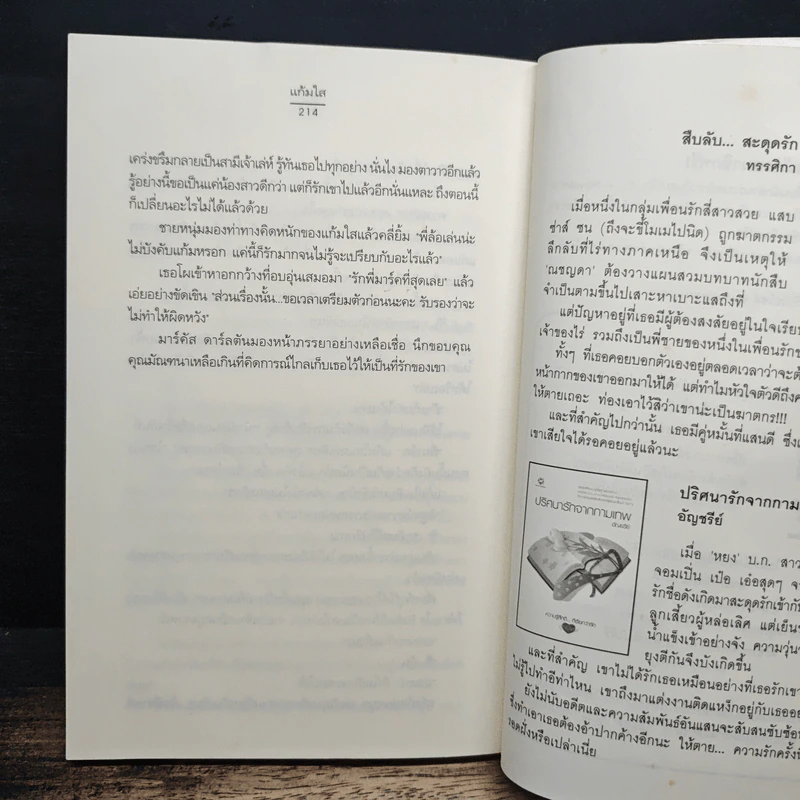 แก้มใส
214
เคร่งขรึมกลายเป็นสามีเจ้าเล่ห์ รู้ทันเธอไปทุกอย่าง นั่นไง มองตาวาวอีกแล้ว
รู้อย่างนี้ขอเป็นแค่น้องสาวดีกว่า แต่ก็รักเขาไปแล้วอีกนั่นแหละ ถึงตอนนี้
ก็เปลี่ยนอะไรไม่ได้แล้วด้วย
ชายหนุ่มมองท่าทางคิดหนักของแก้มใสแล้วคลี่ยิ้ม "พี่ล้อเล่นน่ะ
ไม่บังคับแก้มหรอก แค่นี้ก็รักมากจนไม่รู้จะเปรียบกับอะไรแล้ว"
เธอโผเข้าหาอกกว้างที่อบอุ่นเสมอมา "รักพี่มาร์คที่สุดเลย" แล้ว
เอ่ยอย่างขัดเขิน "ส่วนเรื่องนั้น...ขอเวลาเตรียมตัวก่อนนะคะ รับรองว่าจะ
ไม่ทำให้ผิดหวัง"
มาร์คัส ดาร์ลตันมองหน้าภรรยาอย่างเหลือเชื่อ นึกขอบคุณ
คุณมัณฑนาเหลือเกินที่คิดการณ์ไกลเก็บเธอไว้ให้เป็นที่รักของเขา
สืบลับ... สะดุดรัก
ทรรศิกา
เมื่อหนึ่งในกลุ่มเพื่อนรักสี่สาวสวย แสบ
ซ่าส์ ซน (ถึงจะขี้โมเมไปนิด) ถูกฆาตกรรม
ลึกลับที่ไร่ทางภาคเหนือ จึงเป็นเหตุให้
'ณชญดา' ต้องวางแผนสวมบทบาทนักสืบ
จำเป็นตามขึ้นไปเสาะหาเบาะแสถึงที่
แต่ปัญหาอยู่ที่เธอมีผู้ต้องสงสัยอยู่ในใจเรียบ
เจ้าของไร่ รวมถึงเป็นพี่ชายของหนึ่งในเพื่อนรักข
ทั้งๆ ที่เธอคอยบอกตัวเองอยู่ตลอดเวลาว่าจะต้
หน้ากากของเขาออกมาให้ได้ แต่ทำไมหัวใจตัวดีถึงค
ให้ตายเถอะ ท่องเอาไว้สิว่าเขาน่ะเป็นฆาตกร!!!
และที่สำคัญไปกว่านั้น เธอมีคู่หมั้นที่แสนดี ซึ่งเ
เขาเสียใจได้รอคอยอยู่แล้วนะ
ปริศนารักจากกามเทพ
อัญชรีย์
ปริศนารักจากกาม
อัญชรีย์
เมื่อ 'หยง' บ.ก. สาว
จอมเปิ่น เป๋อ เอ๋อสุดๆ จา
รักชื่อดังเกิดมาสะดุดรักเข้ากั
ลูกเสี้ยวผู้หล่อเลิศ แต่เย็น
น้ำแข็งเข้าอย่างจัง ความวุ่น
ยุงตีกันจึงบังเกิดขึ้น
และที่สำคัญ เขาไม่ได้รักเธอเหมือนอย่างที่เธอรักเขา
ไม่รู้ไปทำอีท่าไหน เขาถึงมาแต่งงานติดแหง็กอยู่กับเธออย
ยังไม่นับอดีตและความสัมพันธ์อันแสนจะสับสนซับซ้อ
ซึ่งทำเอาเธอต้องอ้าปากค้างอีกนะ ให้ตาย... ความรักครั้งนี้
รอดฝั่งหรือเปล่าเนี่ย